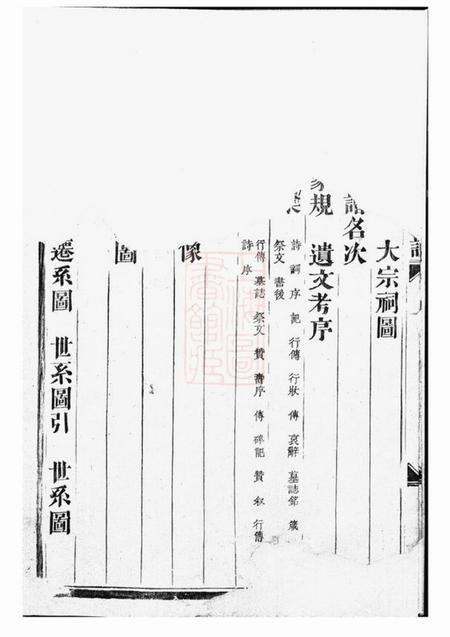 大宗祠圖
名次
規 遺文考序
詩詞序記行傳行狀傳哀辭墓誌銘箴
祭文書後
行傳墓誌祭文贊壽序傳碑記贊叙行傳
詩序
像
圖
遷系圖 世系圖引 世系圖